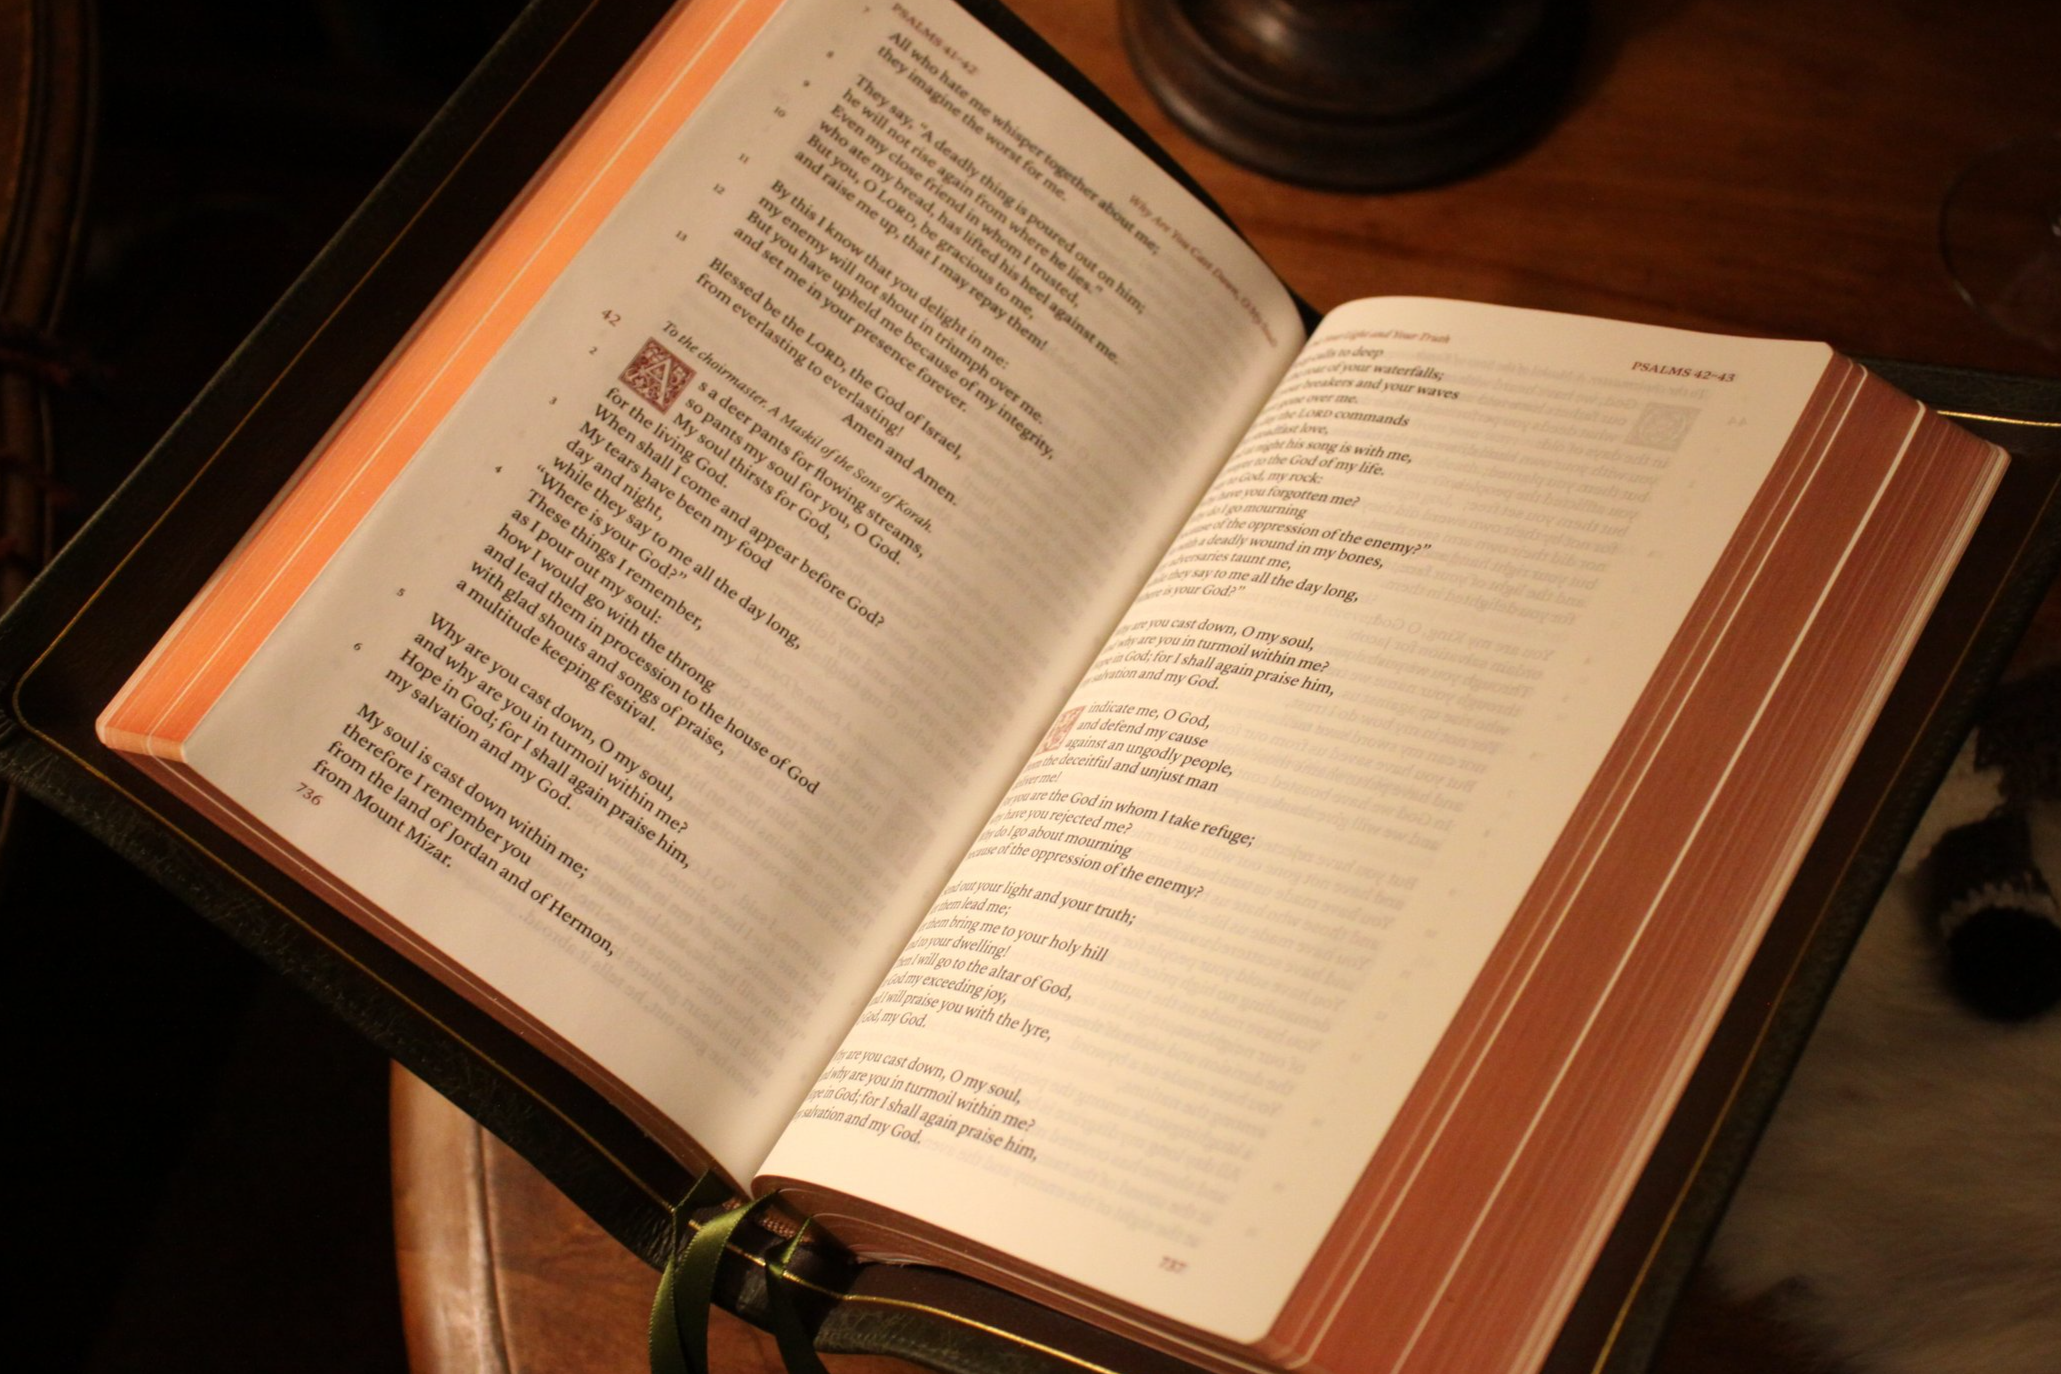 PSALMS 41–42
Why Are You Cast Down, O My Soul
7
All who hate me whisper together about me;
they imagine the worst for me.
8
They say, "A deadly thing is poured out on him;
he will not rise again from where he lies."
9
Even my close friend in whom I trusted,
who ate my bread, has lifted his heel against me.
10
But you, O LORD, be gracious to me,
and raise me up, that I may repay them!
11
By this I know that you delight in me:
my enemy will not shout in triumph over me.
12
But you have upheld me because of my integrity,
and set me in your presence forever.
13
Blessed be the LORD, the God of Israel,
from everlasting to everlasting!
Amen and Amen.
42
To the choirmaster. A Maskil of the Sons of Korah.
As a deer pants for flowing streams,
so pants my soul for you, O God.
2
My soul thirsts for God,
for the living God.
When shall I come and appear before God?
3
My tears have been my food
day and night,
while they say to me all the day long,
"Where is your God?"
4
These things I remember,
as I pour out my soul:
how I would go with the throng
and lead them in procession to the house of God
with glad shouts and songs of praise,
a multitude keeping festival.
5
Why are you cast down, O my soul,
and why are you in turmoil within me?
Hope in God; for I shall again praise him,
my salvation and my God.
6
My soul is cast down within me;
therefore I remember you
from the land of Jordan and of Hermon,
from Mount Mizar.
736
Your Light and Your Truth
PSALMS 42–43
calls to deep
roar of your waterfalls;
breakers and your waves
gone over me.
the LORD commands
steadfast love,
night his song is with me,
to the God of my life.
to God, my rock:
have you forgotten me?
do I go mourning
of the oppression of the enemy?"
with a deadly wound in my bones,
adversaries taunt me,
they say to me all the day long,
is your God?"
are you cast down, O my soul,
why are you in turmoil within me?
in God; for I shall again praise him,
salvation and my God.
Vindicate me, O God,
and defend my cause
against an ungodly people,
the deceitful and unjust man
me!
you are the God in whom I take refuge;
have you rejected me?
do I go about mourning
of the oppression of the enemy?
out your light and your truth;
them lead me;
them bring me to your holy hill
to your dwelling!
I will go to the altar of God,
God my exceeding joy,
I will praise you with the lyre,
God, my God.
are you cast down, O my soul,
why are you in turmoil within me?
in God; for I shall again praise him,
salvation and my God.
737